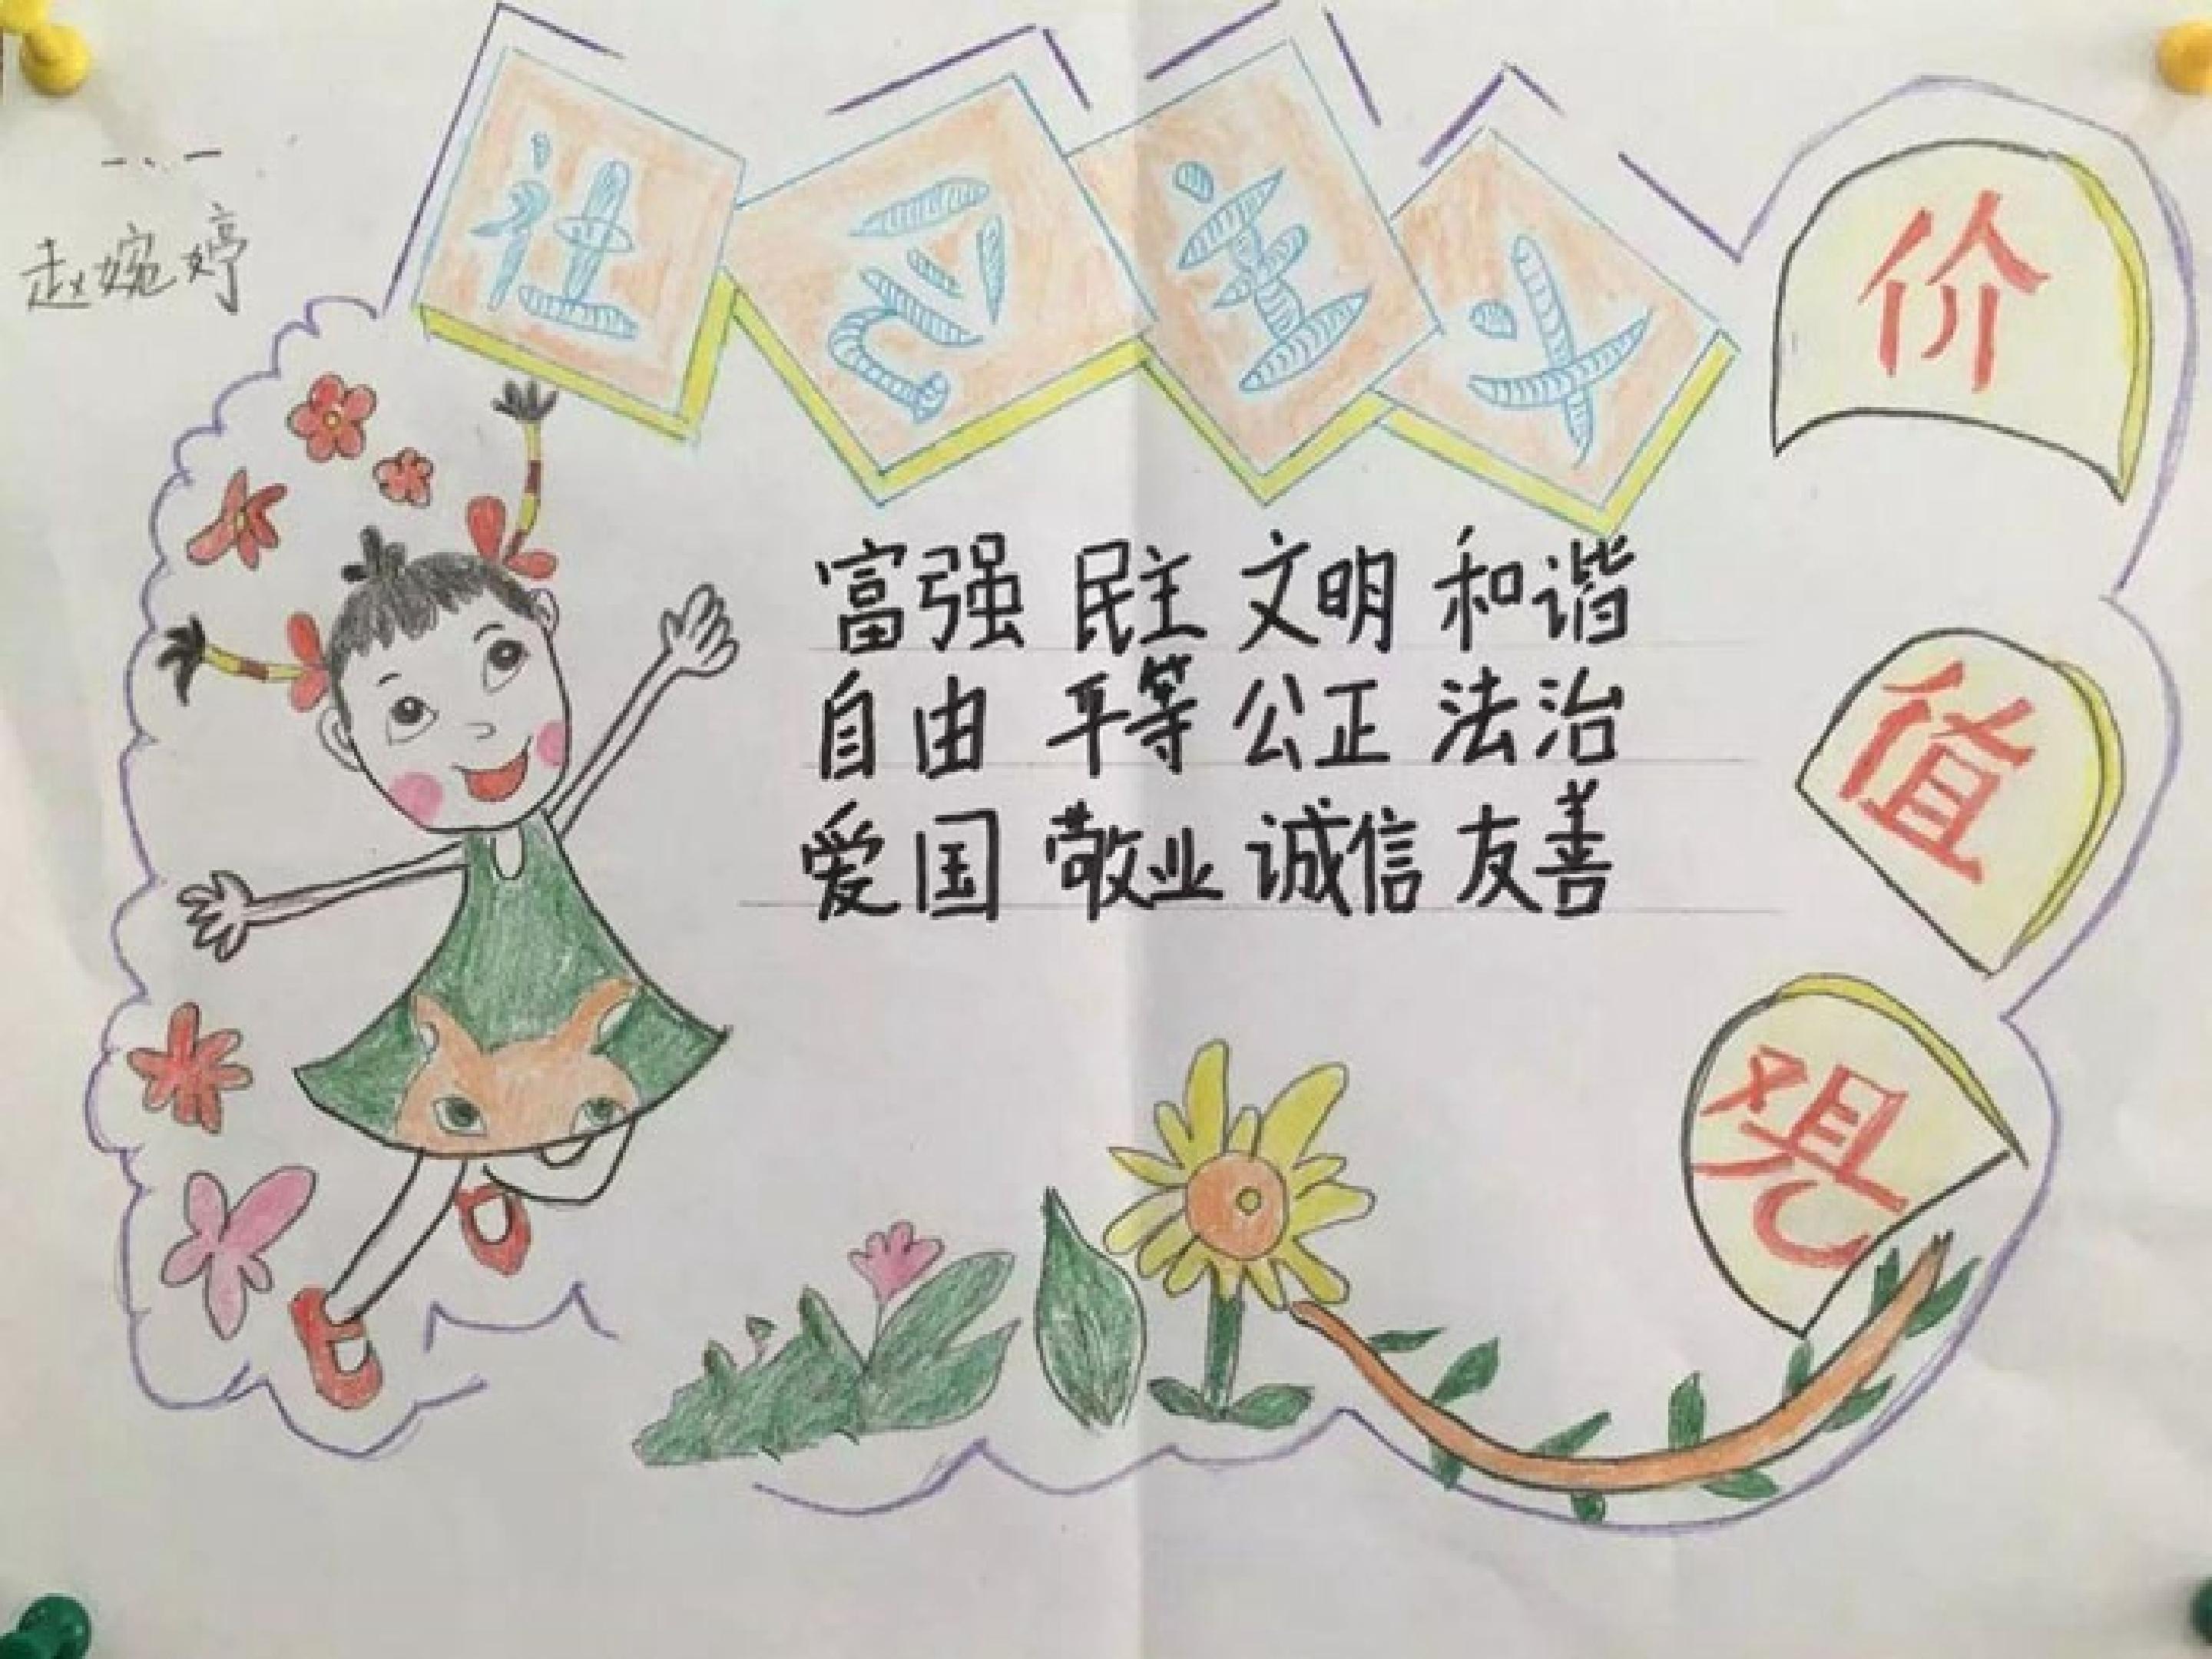 一.一
赵婉婷
社会主义
价值观
富强 民主 文明 和谐
自由 平等 公正 法治
爱国 敬业 诚信 友善